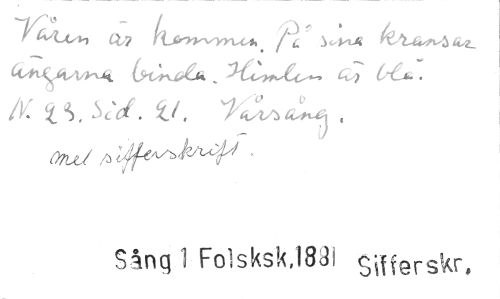 Våren är kommen. På sina kransar
ängarna binda. Himlen är blå.
N. 23. Sid. 21. Vårsång.
med sifferskrift.
Sång 1 Folsksk,1881 Sifferskr.